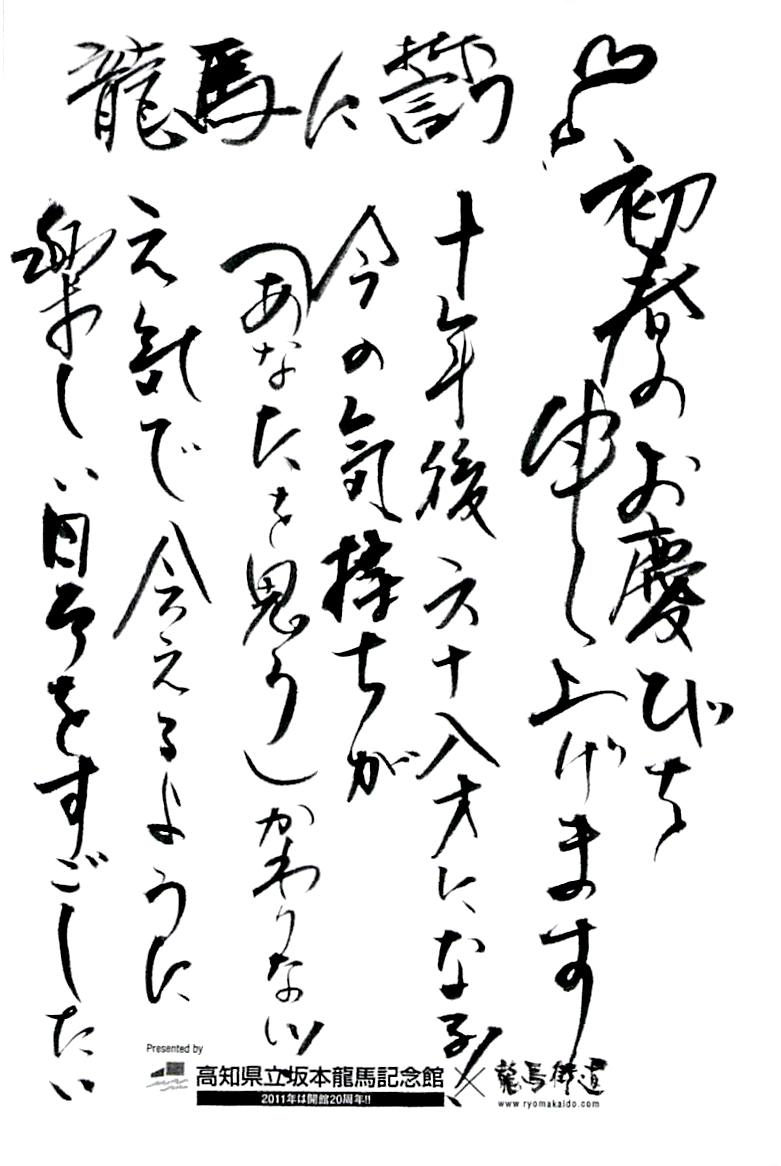 初春のお慶びを
申し上げます
龍馬に誓う
十年後六十八才になる！、
今の気持ちが
（あなたを思う）かわりない！
元気で会えるように
楽しい日々をすごしたい
Presented by
高知県立坂本龍馬記念館 × 龍馬街道
2011年は開館20周年!!
www.ryomakaido.com